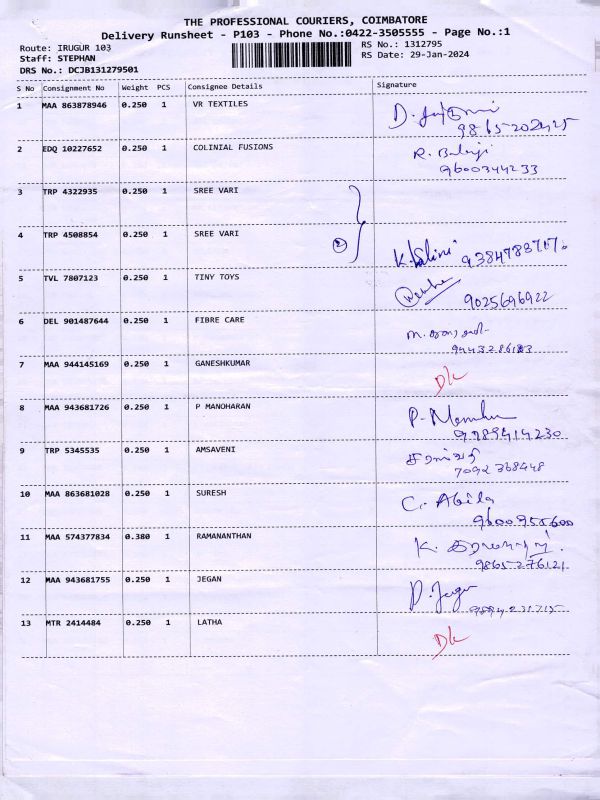 THE PROFESSIONAL COURIERS, COIMBATORE
Delivery Runsheet - P103 - Phone No.:0422-3505555 - Page No.:1
Route: IRUGUR 103
RS No.: 1312795
Staff: STEPHAN
RS Date: 29-Jan-2024
DRS No.: DCJB131279501
S No Consignment No Weight PCS Consignee Details Signature
1 MAA 863878946 0.250 1 VR TEXTILES
2 EDQ 10227652 0.250 1 COLINIAL FUSIONS R. Balaji
9600344233
3 TRP 4322935 0.250 1 SREE VARI
4 TRP 4508854 0.250 1 SREE VARI 2 K. Salini
5 TVL 7807123 0.250 1 TINY TOYS
9025696922
6 DEL 901487644 0.250 1 FIBRE CARE
7 MAA 944145169 0.250 1 GANESHKUMAR D/L
8 MAA 943681726 0.250 1 P MANOHARAN
9989414230
9 TRP 5345535 0.250 1 AMSAVENI
7092 368448
10 MAA 863681028 0.250 1 SURESH C. Abila
9600955600
11 MAA 574377834 0.380 1 RAMANANTHAN
9865276121
12 MAA 943681755 0.250 1 JEGAN
13 MTR 2414484 0.250 1 LATHA D/L